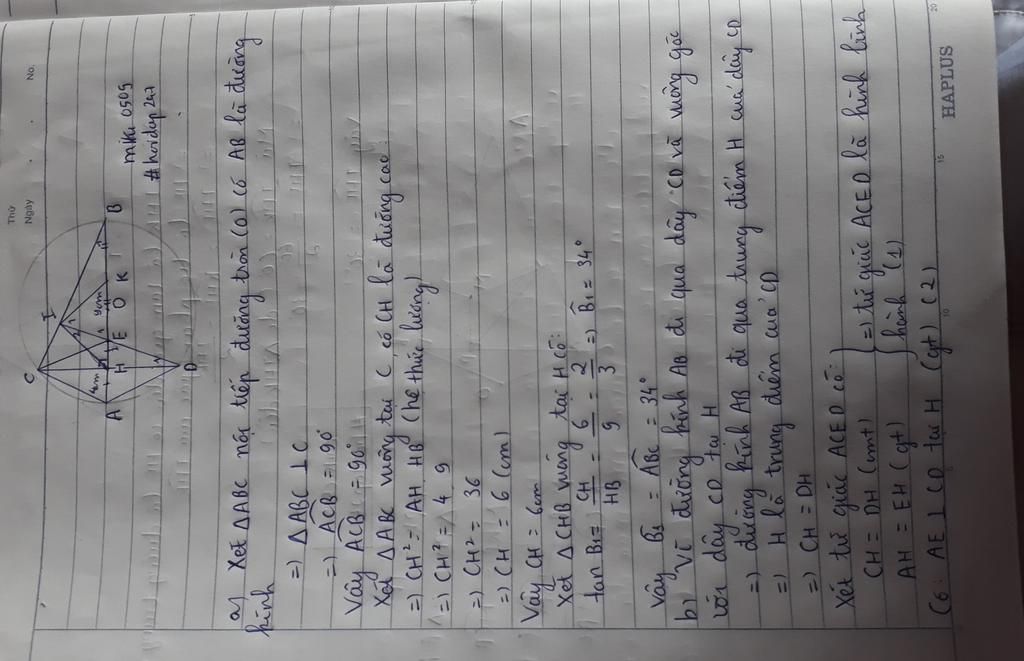 Thứ
Ngày
No.
C
I
A
H
E
O
K
B
D
4cm
9cm
miku 0509
#hoidap247
a) Xét ΔABC nội tiếp đường tròn (O) có AB là đường
kính
=) ΔABC ⊥ C
=) ACB = 90°
Vậy ACB = 90°
Xét ΔABC vuông tại C có CH là đường cao:
=) CH² = AH HB (hệ thức lượng)
(=) CH² = 4 9
=) CH² = 36
=) CH = 6 (cm)
Vậy CH = 6cm
Xét ΔCHB vuông tại H có:
tan B₁ = CH/HB = 6/9 = 2/3 =) B₁ = 34°
Vậy B₁ = ABC = 34°
b) Vì đường kính AB đi qua dây CD và vuông góc
với dây CD tại H
=) đường kính AB đi qua trung điểm H của dây CD
=) H là trung điểm của CD
=) CH = DH
Xét tứ giác ACED có:
CH = DH (cmt) } =) tứ giác ACED là hình bình
AH = EH (gt) } hành (1)
Có: AE ⊥ CD tại H (gt) (2)
5
10
15
20
HAPLUS